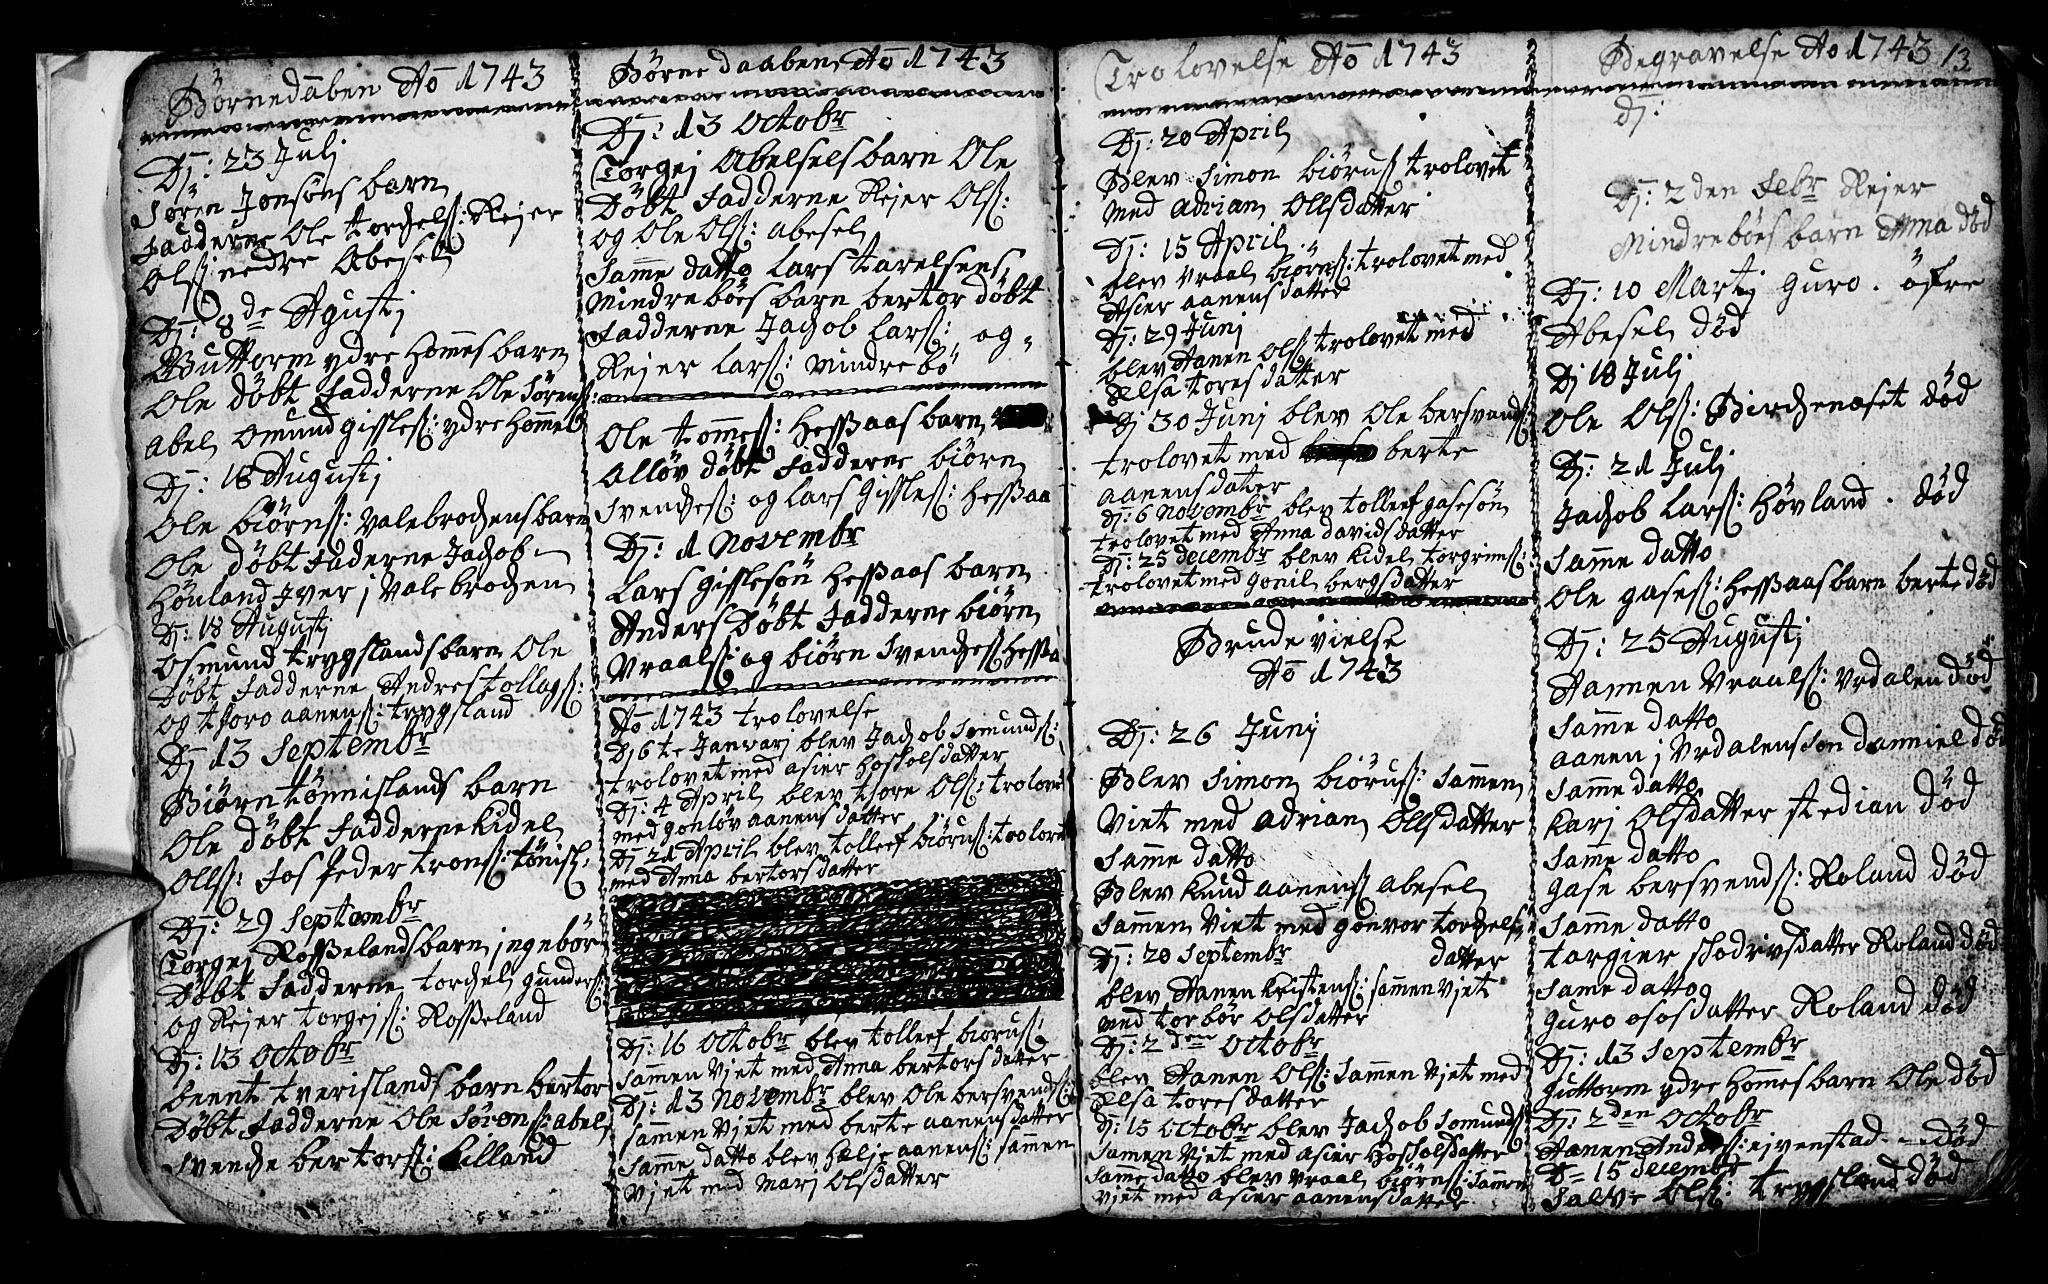 Børnedåben Ao 1743
Dj: 23 Julj
Søren Jonsøns barn
Fadderne Ole torchels: Rejer
Ols: nedre Abesel
Dj: 8de Agustj
Guttorm ydre Hommes barn
Ole döbt Fadderne Ole Sørens:
abel Omund gisles: ydre homme
Dj: 18 Augustj
Ole biörns: Valebrochens barn
Ole döbt Faderne Jachob
Hönland Iver j Valebrochen
Dj: 18 Augustj
Osmund trygslands barn Ole
Döbt Fadderne Andres tollags:
og thoro aanens: trygsland
Dj 13 Septembr
Biörn tönnislands barn
Ole döbt Fadderne Kidel
Olls: Jos Peder trons: tönisl:
Dj: 29 Septembr
Torgej Rosselands barn jngebör
Döbt Fadderne torchel gunders:
og Rejer torgejs: Rosseland
Dj: 13 Octobr
beent tverislands barn bertor
Döbt Fadderne Ole Sörens: abel
Svenche bertors: Lilland
Börnedaaben Ao 1743
Dj: 13 Octobr
Torgej Abelsels barn Ole
Döbt Fadderne Rejer Ols:
og Ole Ols: abesel
Samme datto Lars tarelsens
Mindrebös barn bertor döbt
Fadderne Jachob Lars: og
Rejer Lars: mindrebö
Ole tommes: Hessaas barn
Ollöv döbt Fadderne biörn
Svenches: og Lars gisles: Hessaa
Dj: 1 Novembr
Lars gislesön Hessaas barn
Anders Döbt Fadderne biörn
Vraals: og biörn Svenches: Hessa
Ao 1743 trolovelse
Dj 6te Janvarj blev Jachob Somunds:
trolovet med asier Hoskolsdatter
Dj: 4 April blev tore Ols: trolovet
med gonlöv aanensdatter
Dj 21 April blev tolleef biörus: trolovet
med Anna bertorsdatter
Dj: 16 Octobr blev tolleef biörus:
sammen vjet med Anna bertorsdatter
Dj: 13 Novembr blev Ole bersvends:
sammen vjet med berte aanensdatter
Samme datto blev Helje aanens: sammen
vjet med Marj Olsdatter
Trolovelse Ao 1743
Dj: 20 April
Blev Simon biörus: trolovet
med adrian Ollsdatter
Dj: 15 April
blev Vraal biörns: trolovet med
Asier aanensdatter
Dj: 29 Junj
blev Aanen Ols: trolovet med
Elsa toresdatter
Dj 30 Junj blev Ole bersvends:
trolovet med berte
aanensdatter
Dj: 6 Novembr blev tolleef gasesön
trolovet med Anna davidsdatter
Dj: 25 decembr blev Kidel torgrims:
trolovet med gonil bergsdatter
Brude vielse
Ao 1743
Dj: 26 Junj
Blev Simon biörus: Sammen
Viet med adrian Ollsdatter
Samme datto
Blev Knud aanens: abesel
Sammen Viet med gonvor torchels
datter
Dj: 20 Septembr
blev Aanen Kristens: sammen vjet
med torbör Olsdatter
Dj: 2den Octobr
blev Aanen Ols: Sammen vjet med
Elsa toresdatter
Dj: 15 Octobr blev Jachob Somunds
Samen vjet med asier Hoskolsdatter
Samme datto blev Vraal biörns: Sammen
vjet med asier aanensdatter
Begravelse Ao 1743 13
Dj:
Dj: 2den Febr Rejer
Mindrebös barn Anna död
Dj: 10 Martj guro. öfre
Abesel död
Dj 18 Julj
Ole Ols: Birchenæset död
Dj: 21 Julj
Jachob Lars: Hövland. död
Samme datto
Ole gases: Hessaas barn berte död
Dj: 25 Augustj
Aannen Vraals: Vrdalen död
Samme datto
aanen j Vrdalens Son Danniel död
Samme datto
Karj Olsdatter stedian död
Samme datto
gase bersvends: Roland död
Samme datto
torgier skodrivsdatter Roland död
Same datto
guro ososdatter Roland död
Dj: 13 Septembr
guttorm ydre Hommes barn Ole död
Dj: 2den Octobr
Aanen Anders: ejvenstad död
D 15 Decembr
Salve Ols: trygsland död